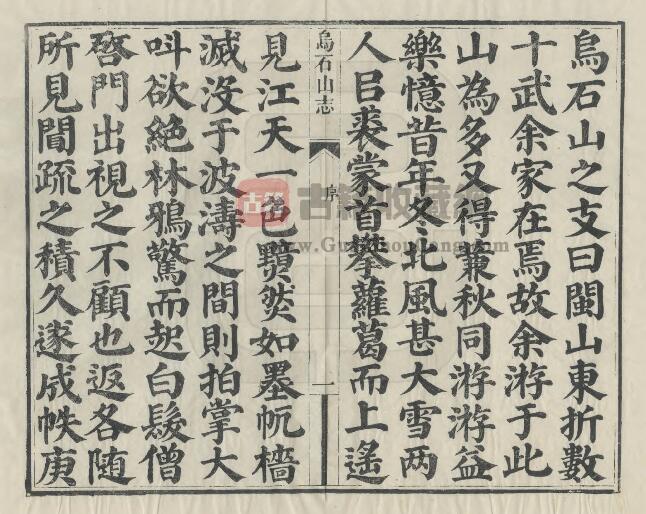 烏石山之支曰閩山東折數
十武余家在焉故余游于此
山為多又得蒹秋同游游益
樂憶昔年冬北風甚大雪两
人㠯裘蒙首攀蘿葛而上遙
烏石山志
序
一
見江天一色黯然如墨帆檣
滅沒于波濤之間則拍掌大
叫欲絶林鴉驚而起白髮僧
啓門出視之不顧也返各随
所見聞疏之積久遂成帙庚
古籍
古籍收藏網